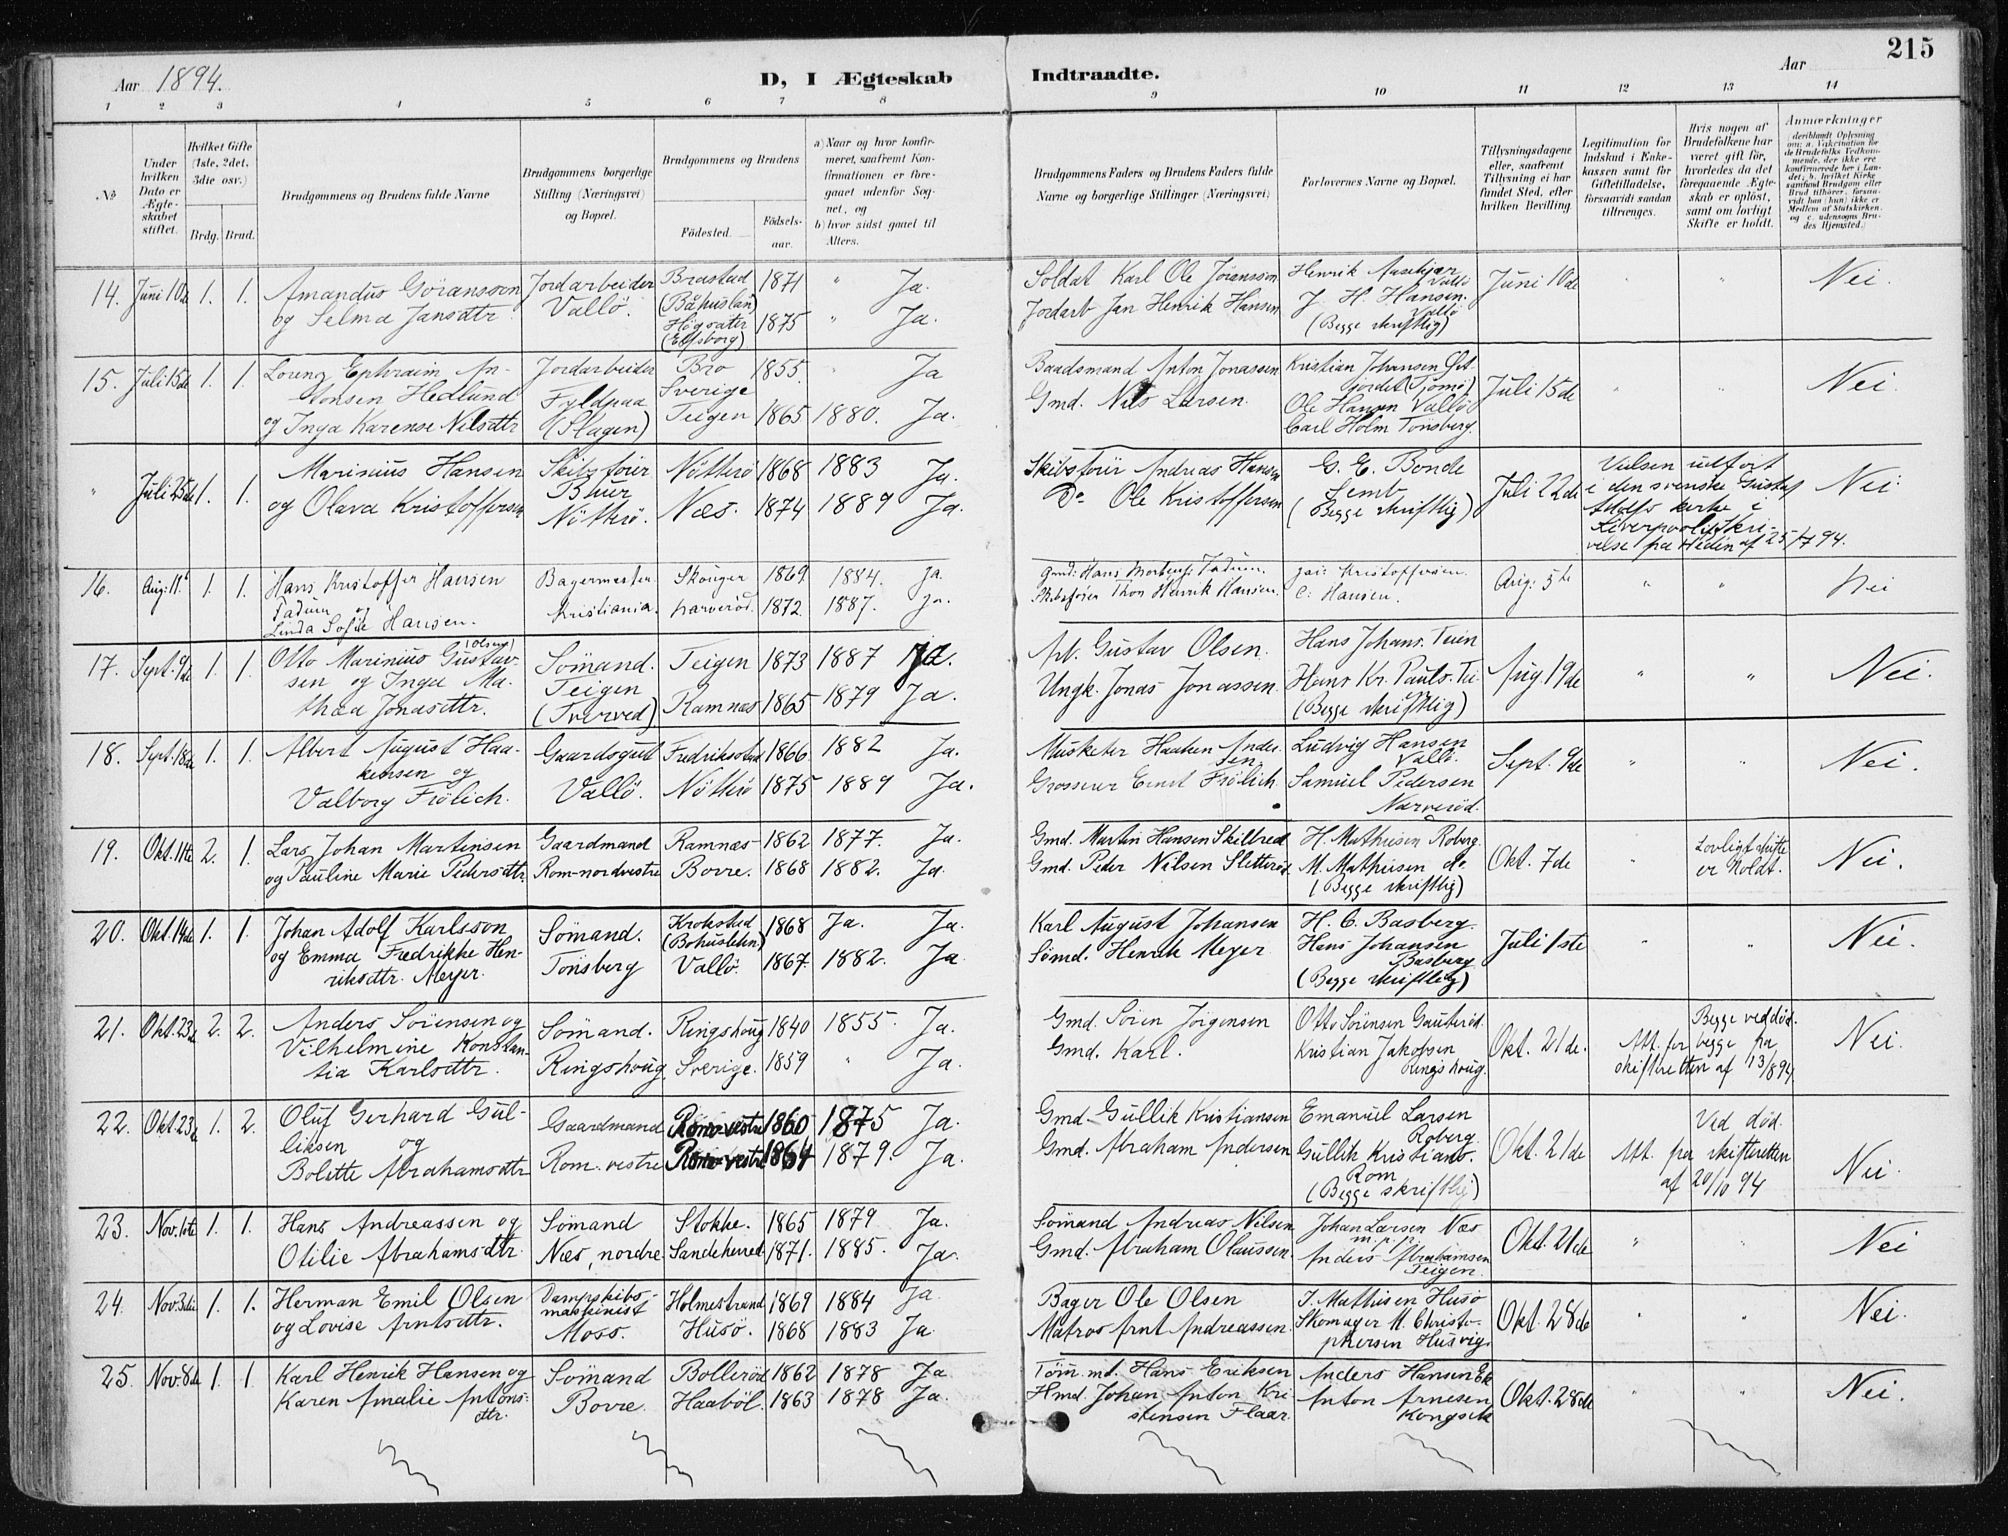 215
Aar 1894.
D, I Ægteskab Indtraadte.
Aar
1 2 3 4 5 6 7 8 9 10 11 12 13 14
№
Under hvilken Dato er Ægteskabet stiftet.
Hvilket Gifte (1ste, 2det, 3die osv.)
Brdg. Brud.
Brudgommens og Brudens fulde Navne
Brudgommens borgerlige Stilling (Næringsvei) og Bopæl.
Brudgommens og Brudens
Födested. Födselsaar.
a) Naar og hvor konfirmeret, saafremt Konfirmationen er foregaaet udenfor Sognet, og
b) hvor sidst gaaet til Alters.
Brudgommens Faders og Brudens Faders fulde Navne og borgerlige Stillinger (Næringsvei)
Forlovernes Navne og Bopæl.
Tillysningsdagene eller, saafremt Tillysning ei har fundet Sted, efter hvilken Bevilling
Legitimation for Indskud i Enkekassen samt for Giftetilladelse, forsaavidt saadan tiltrænges.
Hvis nogen af Brudefolkene har været gift för, hvorledes da det foregaaende Ægteskab er oplöst, samt om lovligt Skifte er holdt.
Anmærkninger
14. Juni 10de 1. 1. Amandus Göransson Jordarbeider Brastad 1871 " Ja. Soldat Karl Ole Joransson Henrik Vallö Juni 10de " " Nei.
og Selma Jansdtr. Vallö. (Båhuslän) Högsäter (Elfsborg) 1875 " Ja. Jordarb Jan Henrik Hansen J. H. Hansen. Vallö (Begge skriftlig)
15. Juli 15de 1. 1. Lorenz Ephraim An- Jordarbeider Bro 1855. " Ja Baadsmand Anton Jonassen Kristian Johansen (Tjömö) Juli 15de " " Nei.
tonsen Hedlund Fyldpaa Sverige Ole Hansen Vallö
og Inga Karense Nilsdtr (Slagen) Teigen 1865 1880. Ja. Gmd. Nils Larsen. Carl Holm Tönsberg.
" Juli 25de 1. 1. Marinius Hansen Skibsförer Nötterö 1868 1883 Ja. Skibsförer Andreas Hansen G. E. Bonde Juli 22de Vielsen udfört Nei
og Olava Kristoffersen Nötterö. Næs. 1874 1889 Ja. Do Ole Kristoffersen Semb (Begge skriftlig) i den svenske Gustaf Adolfs kirke i Liverpool. Skrivelse fra Hedin af 25/7 94.
16. Aug: 11. 1. 1. Hans Kristoffer Hansen Bagermester Skouger 1869 1884. ja. Gmd: Hans Kristoffersen. Aug: 5te " " Nei
Tadum og
Linda Sofie Hansen. Kristiania. Narverød. 1872. 1887. ja. Skibsförer Thor Henrik Hansen. C: Hansen.
17. Sept. 9de 1. 1. Otto Marinius Gustav- (Olsen) Sömand. Teigen 1873 1887 ja. Arb. Gustav Olsen. Hans Johans. Teien Aug 19de " " Nei.
sen og Inga Ma- Teigen
thea Jonasdtr. (Tverved) Ramnæs 1865 1879 Ja. Ungk. Jonas Jonassen. Hans Kr. Pauls. Tei- (Begge skriftlig)
18. Sept. 18de 1. 1. Albert August Haa- Gaardsgut Fredriksstad 1866. 1882 Ja. Musketer Haaken Andersen. Ludvig Hansen Vallö. Sept. 9de " " Nei.
kensen og
Valborg Frölich. Vallö. Nötterö 1875 1889 Ja. Grosserer Ernst Frölich. Samuel Pedersen Narveröd.
19. Okt. 11te 2. 1. Lars Johan Martinsen Gaardmand Ramnæs 1862 1877. Ja. Gmd. Martin Hansen Skillred H. Mathiesen Roberg. Okt. 7de " Lovligt skifte er holdt. Nei.
og Pauline Marie Pedersdtr. Rom-nordvestre Borre. 1868 1882. Ja. Gmd. Peder Nilsen Sletteröd M. Mathiesen do (Begge skriftlig)
20. Okt. 14de 1. 1. Johan Adolf Karlsson Sömand. Krokstad (Bohuslehn) 1868 Ja. Ja. Karl August Johansen H. C. Basberg. Juli 1ste " " Nei.
og Emma Fredrikke Hen-
riksdtr. Meyer. Tönsberg Vallö. 1867. 1882. Ja Sömd. Henrik Meyer Hans Johansen Basberg (Begge skriftlig)
21. Okt. 23de 2. 2. Anders Sörensen og Sömand. Ringshoug 1840 1855. Ja. Gmd. Sören Jörgensen Otto Sörensen Gauteröd. Okt. 21de. Att. for begge fra skifteretten af 13/8 94. Begge ved död. Nei.
Vilhelmine Konstan-
tia Karlsdtr. Ringshoug Sverige. 1859 " Ja. Gmd. Karl. Kristian Jakobsen Ringshoug.
22. Okt. 23de 1. 2. Oluf Gerhard Gul- Gaardmand Rom vestre 1860 1875 Ja. Gmd. Gullik Kristiansen Emanuel Larsen Roberg. Okt. 21de Att. fra skifteretten af 20/10 94 Ved död. Nei.
liksen og
Bolette Abrahamsdtr Rom. vestre Rom vestre 1864 1879. Ja. Gmd. Abraham Andersen Gullik Kristians. Rom (Begge skriftlig)
23. Nov. 1ste 1. 1. Hans Andreassen og Sömand Stokke. 1865 1879 Ja. Sömand Andreas Nilsen Johan Larsen Næs m.p.p. Okt. 21de " " Nei
Otilie Abrahamsdtr. Næs, nordre. Sandeherred 1871. 1885. Ja. Gmd. Abraham Olaussen. Anders Abrahamsen Teigen.
24. Nov. 3die 1. 1. Herman Emil Olsen Dampskibs- maskinist Holmestrand 1869 1884 Ja. Bager Ole Olsen J. Mathisen Husö Okt. 28de " " Nei.
og Lovise Arntsdtr. Moss. Husö. 1868 1883 Ja. Matros Arnt Andreassen. Skomager M. Christophersen Husvig.
25. Nov. 8de 1. 1. Karl Henrik Hansen og Sömand Bolleröd 1862 1878 Ja Töm.md. Hans Eriksen Anders Hansen Ek Okt. 28de " " Nei.
Karen Amalie Antons- dtr. Borre. Haaböl. 1863 1878 Ja. Hmd. Johan Anton Kristensen Flaar. Anton Arnesen Kongsek